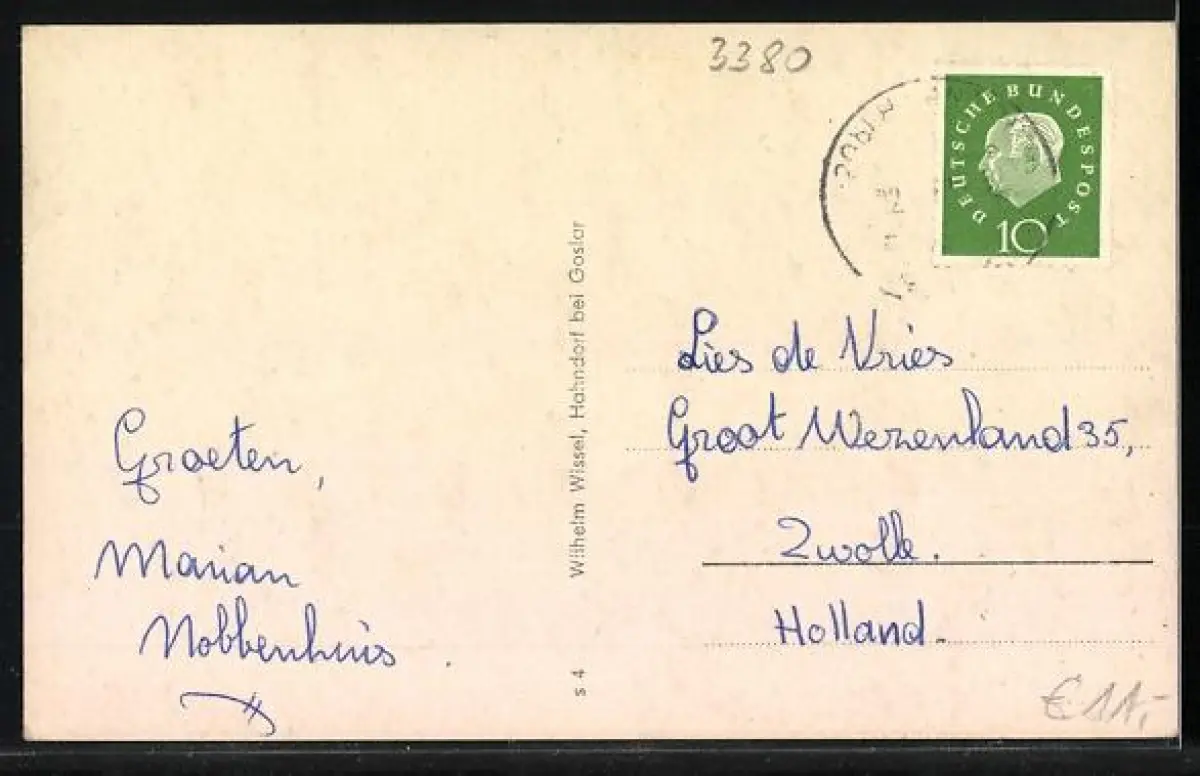 3380
DEUTSCHE BUNDESPOST
10
Lies de Vries
Groot Wezenland 35,
Zwolle.
Holland.
Groeten,
Marian
Nobbenhuis
Wilhelm Wissel, Hahndorf bei Goslar
s 4
€ 11,-